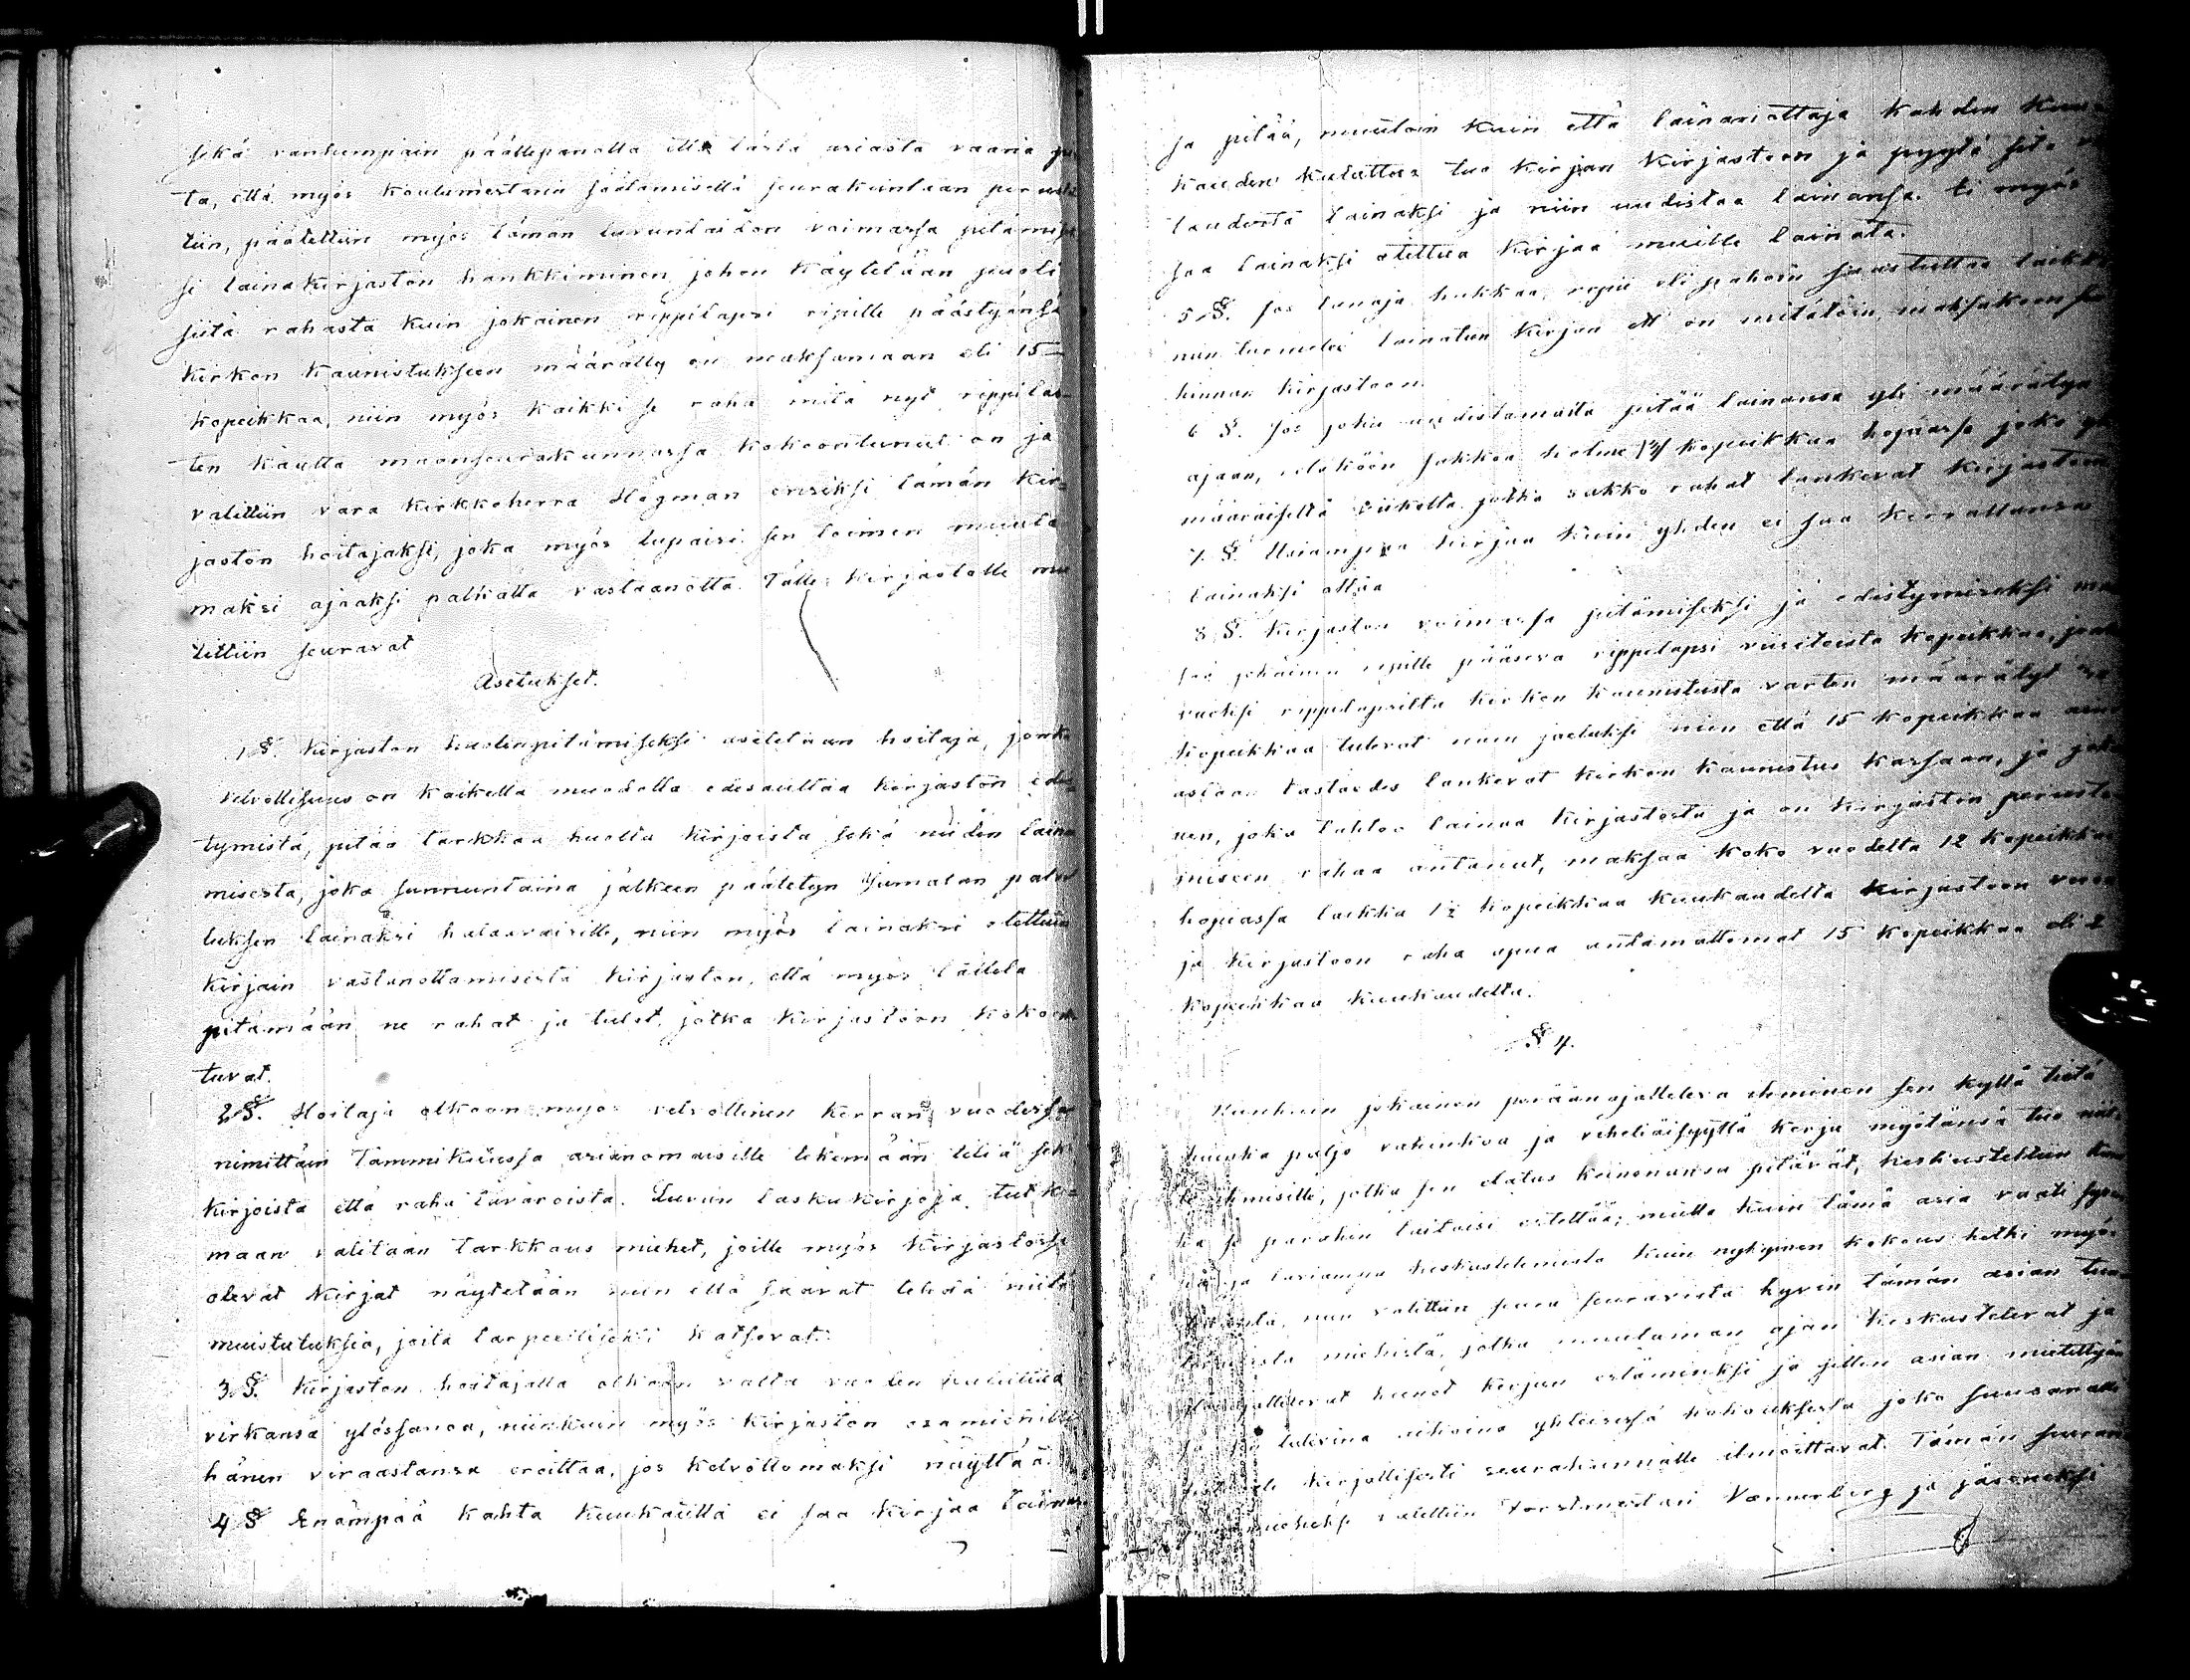 sekä vanhempain päällepanolla että tästä asiasta vaaria
ta, että myös koulumestaria säätämisellä seurakuntaan perustet
tiin, päätettiin myös tämän luvuntaidon voimassa pitämise
si lainakirjaston hankkiminen, johon käytetään puoli
siitä rahasta kuin jokainen rippilapsi ripille päästyänsä
kirkon kaunistukseen määrätty on maksamaan eli 15
kopeikkaa, niin myös kaikki se raha mitä nyt rippilas-
ten kautta maanseurakunnassa kokoontunut on ja
valittiin vara kirkkoherra Högman ensiksi tämän kir-
jaston hoitajaksi, joka myös lupaisi sen toimen muuta
maksi ajaaksi palkatta vastaanotta. Tälle kirjastolle
tittiin seuravat
Asetukset.
1 §. Kirjaston huolenpitämiseksi asetetaan hoitaja, jonka
velvollisuus on kaikella muodolla edesauttaa kirjaston edis-
tymistä, pitää tarkkaa huolta kirjoista sekä niiden laina
misesta, joka sunnuntaina jälkeen päätetyn Jumalan palve
luksen lainaksi halaavaisille, niin myös lainaksi otettuin
kirjain vastanottamisesta kirjaston, että myös tallela
pitämään ne rahat ja tulot, jotka kirjastoon kokoon
tuvat.
2 §. Hoitaja olkoon myös velvollinen kerran vuodessa
nimittäin Tammikuussa asianomaisille tekemään tiliä sekä
kirjoista että raha tavaroista. Luvun laskukirjoja tutki-
maan valitaan tarkkaus miehet, joille myös kirjastossa
olevat kirjat näytetään niin että saavat tehdä niitä
muistutuksia, joita tarpeelliseksi katsovat.
3 §. Kirjaston hoitajalla olkoon valta vuoden kuluttua
virkansa ylössanoa, niinkuin myös kirjaston osamiehillä
hänen virastansa eroittaa, jos kelvottomaksi näyttää.
4 § Enämpää kahta kuukautta ei saa kirjaa lainas-
sa pitää, muutoin kuin että lainaniottaja kahden kuu
kauden kuluttua tuo kirjan kirjastoon ja pyytä sitä
taudesta lainaksi ja niin uudistaa lainansa. Ei myös
saa lainaksi otettua kirjaa muille lainata.
5 §. Jos lainaja hukkaa, repii eli pahoin saastuttaa taikka
niin turmelee lainatun kirjan ett on mitätöin, maksakoon sen
hinnan kirjastoon.
6 §. Jos joku uudistamata pitää lainansa yli määrätyn
ajaan, vetäköön sakkoa kolme /3/ kopeikkaa hopiassa joka
määräiseltä viikolta jotka sakko rahat lankevat kirjastoon
7 §. Useampaa kirjaa kuin yhden ei saa kerrallansa
lainaksi ottaa
8 §. Kirjaston voimassa pitämiseksi ja edistymiseksi mak
saa jokainen ripille pääsevä rippilapsi viisitoista kopeikkaa,
vuoksi rippilapsilta kirkon kaunistusta varten määrätyt
kopeikkaa tulevat niin jaetuksi niin että 15 kopeikkaa
astaan tästäedes lankevat kirkon kaunistus kassaan, ja jokai
nen, joka tahtoo lainaa kirjastosta ja on kirjaston perusta
miseen rahaa antanut, maksaa koko vuodelta 12 kopeikkaa
hopiassa taikka 1½ kopeikkaa kuukaudelta kirjastoon
ja kirjastoon raha apua antamattomat 15 kopeikkaa eli 2
kopeikkaa kuukaudelta.
§ 4.
Kuinkuin jokainen perään ajatteleva ihminen sen kyllä tietä
kuinka paljo vahinkoa ja viheliäisyyttä kerju myötänsä tuo
ihmisille, jotka sen elatus keinonansa pitävät, keskusteltiin
ka se parahin taitaisi estettää; mutta kuin tämä asia vaati
ja laviampaa keskustelemista kuin nykyinen kokous hetki myö
niin valittiin seura seuravista hyvin tämän asian tun-
miehistä, jotka muutaman ajan keskustelevat ja
ajattelevat keinot kerjun estämiseksi ja sitten asian mietittyän
tulevina aikoina yhteisessä kokouksessa joko suusanalli
eli kirjallisesti seurakunnalle ilmoittavat. Tämän seuran
miehiksi valittiin Forstmestari Vonnerberg ja jäseneksi